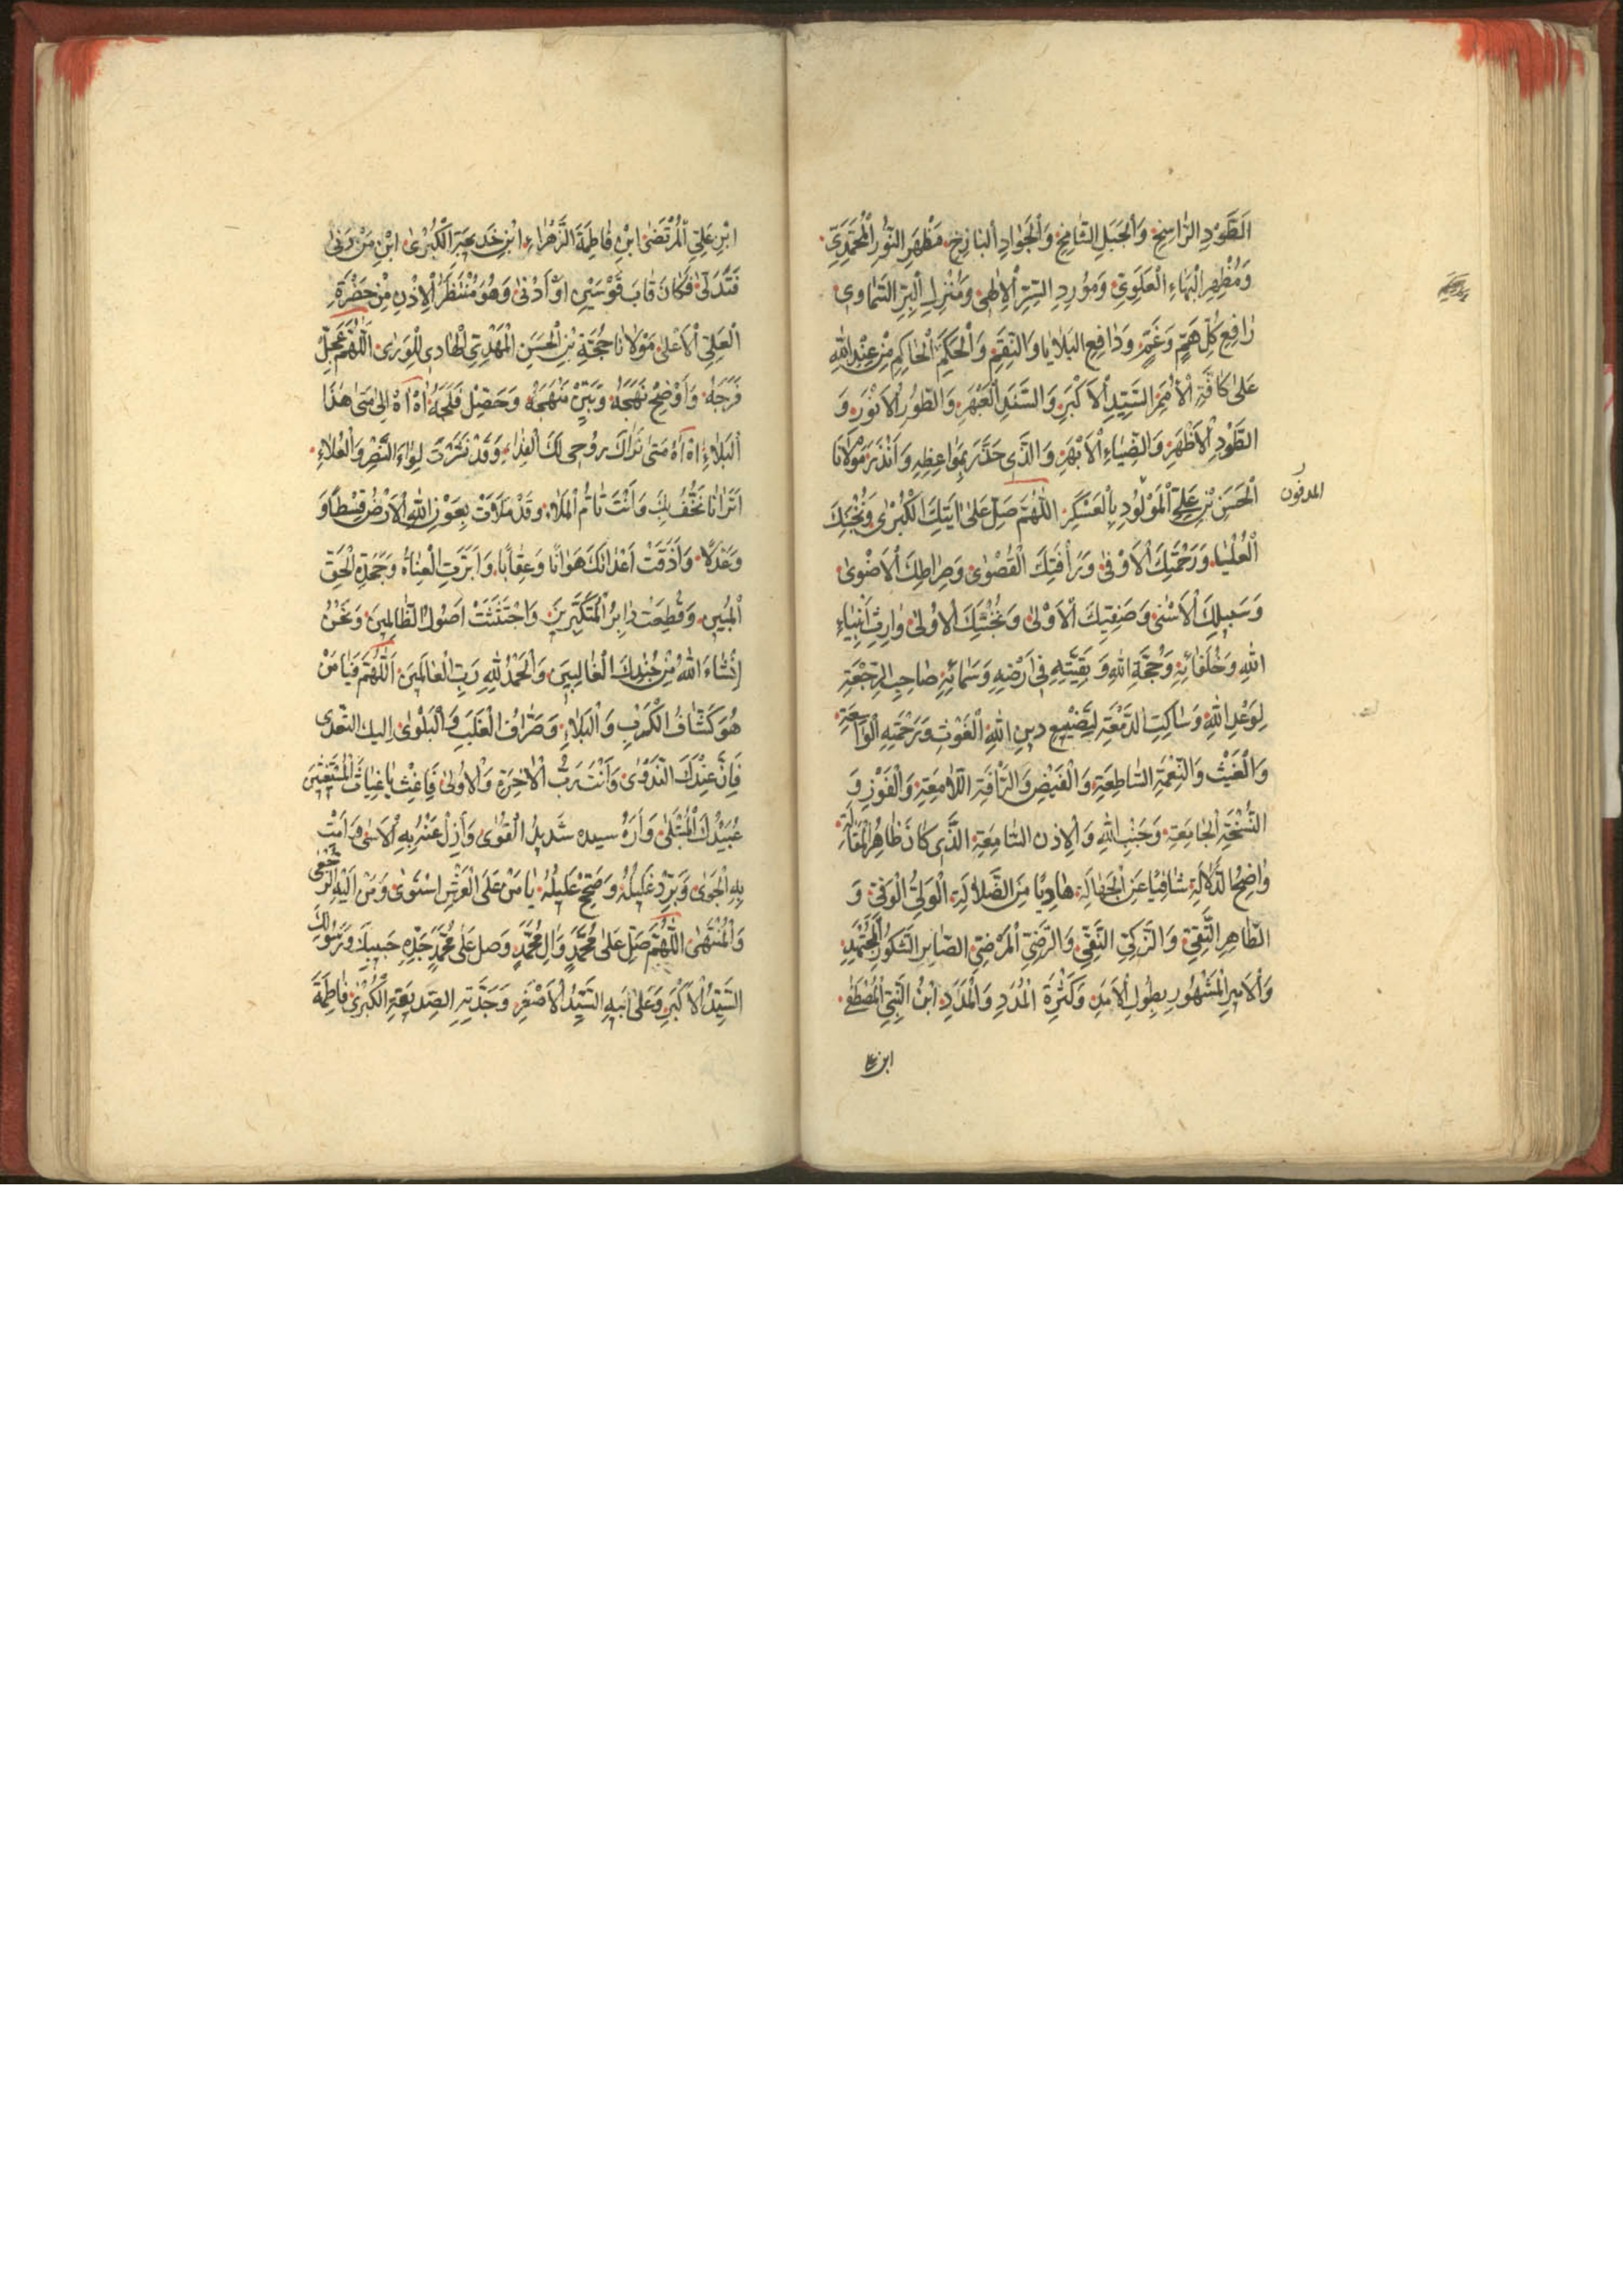 اَلطَّوْدِ الرّٰاسِخِ وَاَلْجَبَلِ الشّٰامِخِ وَاَلْجَوٰادِ اَلْبٰاذِخِ مَظْهَرِ النُّورِ الْمُحَمَّدِيِّ
وَمُظْهِرِ الْبَهٰاءِ الْعَلَوِيِّ وَمُورِدِ السِّرِّ الْاِلٰهِيِّ وَمُنْزِلِ الْبِرِّ السَّمٰاوِي
رٰافِعِ كُلِّ هَمٍّ وَغَمٍّ وَدٰافِعِ البَلاٰيٰا وَالنِّقَمِ وَالْحَكَمِ الْحٰاكِمِ مِنْ عِنْدِ اللهِ
عَلىٰ كٰافَّةِ الْاُمَمِ السَّيِّدِ الْاَكْبَرِ وَالسَّنَدِ الْعَبْهَرِ وَالطُّورِ الْاَنْوَرِ وَ
الطَّوْدِ الْاَظْهَرِ وَالضِّيٰاءِ الْاَبْهَرِ وَالَّذِي حَذَّرَ بِمَوٰاعِظِهِ وَاَنْذَرَ مَوْلاٰنٰا
الْحَسَنِ بْنِ عَلِيٍّ الْمَوْلُودِ بِالْعَسْكَرِ اللّٰهُمَّ صَلِّ عَلىٰ اٰيَتِكَ الْكُبْرىٰ وَنُخْبَتِكَ
المدفون
الْعُلْيٰا وَرَحْمَتِكَ الْاَوْفىٰ وَرَأْفَتِكَ الْقُصْوىٰ وَصِرٰاطِكَ الْاَضْوىٰ
وَسَبِيلِكَ الْاَسْنىٰ وَصَفِيِّكَ الْاَوْلىٰ وَحُجَّتِكَ الْاُولىٰ وٰارِثِ اَنْبِيٰاءِ
اللهِ وَخُلَفٰائِهِ وَحُجَّةِ اللهِ وَبَقِيَّتِهِ فِي اَرْضِهِ وَسَمٰائِهِ صٰاحِبِ الرَّجْعَةِ
لِوَعْدِ اللهِ وَسٰاكِبِ الدَّمْعَةِ لِتَضْيِيعِ دِينِ اللهِ الْغَوْثِ وَرَحْمَتِهِ الْوٰاسِعَةِ
وَالْغَيْثِ وَالنِّعْمَةِ السّٰاطِعَةِ وَالْفَيْضِ وَالرَّأْفَةِ اللّٰامِعَةِ وَالْفَوْزِ وَ
النُّسْخَةِ الْجٰامِعَةِ وَجَنْبِ اللهِ وَالْاُذُنِ السّٰامِعَةِ الَّذِي كٰانَ ظٰاهِرُ الْمَقٰالَةِ
وٰاضِحُ الدَّلاٰلَةِ شٰافِيًا عَنِ الْجَهٰالَةِ هٰادِيًا مِنَ الضَّلاٰلَةِ الْوَلِيِّ الْوَفِيِّ وَ
الطّٰاهِرِ التَّقِيِّ وَالزَّكِيِّ النَّقِيِّ وَالرَّضِيِّ الْمَرْضِيِّ الصّٰابِرِ الشَّكُورِ الْمُجْتَهِدِ
وَالْاَمِيرِ الْمَشْهُورِ بِطُولِ الْاَمَدِ وَكَثْرَةِ الْمُدَدِ وَالْمَدَدِ ابْنُ النَّبِيِّ الْمُصْطَفىٰ
ابن علـ
ابْنِ عَلِيِّ الْمُرْتَضىٰ ابْنِ فٰاطِمَةَ الزَّهْرٰاءِ ابْنِ خَدِيجَةِ الْكُبْرىٰ ابْنِ مَنْ دَنىٰ
فَتَدَلّىٰ فَكٰانَ قٰابَ قَوْسَيْنِ اَوْ اَدْنىٰ وَهُوَ مُنْتَظَرُ الْاِذْنِ مِنْ حَضْرَةِ
الْعَلِيِّ الْاَعْلىٰ مَوْلاٰنٰا حُجَّةِ بْنِ الْحَسَنِ الْمَهْدِيِّ الْهٰادِي الْوَرىٰ اَللّٰهُمَّ عَجِّلْ
فَرَجَهُ وَاَوْضِحْ نَهْجَهُ وَبَيِّنْ مَنْهَجَهُ وَحَصِّلْ فَلَجَهُ اٰهْ اٰهْ اِلىٰ مَتىٰ هٰذَا
الْبَلاٰءُ اٰهْ اٰهْ مَتىٰ نَرٰاكَ رُوحِي لَكَ الْفِدٰاءُ وَقَدْ نَشَرْتَ لِوٰاءَ النَّصْرِ وَالْعُلاٰءِ
اَتَرٰانٰا نَحُفُّ بِكَ وَاَنْتَ تَأُمُّ الْمَلاٰءَ وَقَدْ مَلَأْتَ بِعَوْنِ اللهِ الْاَرْضَ قِسْطًا وَ
وَعَدْلًا وَاَذَقْتَ اَعْدٰائَكَ هَوٰانًا وَعِقٰابًا وَاَبَرْتَ الْعُتٰاةَ وَجَحَدَةِ الْحَقِّ
الْمُبِينِ وَقَطَعْتَ دٰابِرَ الْمُتَكَبِّرِينَ وَاجْتَثَثْتَ اُصُولَ الظّٰالِمِينَ وَنَحْنُ
اِنْشٰاءَ اللهُ مِنْ جُنْدِكَ الْغٰالِبِينَ وَالْحَمْدُ لِلّٰهِ رَبِّ الْعٰالَمِينَ اَللّٰهُمَّ فَيٰا مَنْ
هُوَ كَشّٰافُ الْكُرَبِ وَالْبَلاٰءِ وَصَرّٰافُ وَالْبَلْوىٰ اِلَيْكَ التَّعَدِي
فَاِنَّ عِنْدَكَ الْعَدْوىٰ وَاَنْتَ رَبُّ الْاٰخِرَةِ وَالْاُولىٰ فَاَغِثْ يٰا غِيٰاثَ الْمُسْتَغِيثِينَ
عُبَيْدَكَ الْمُبْتَلىٰ وَاَرِهْ سيده شَدِيدُ الْقُوىٰ وَاَزِلْ عَنْهُ بِهِ الْاَسىٰ وَاَمِتْ
بِهِ الْجَوىٰ وَبَرِّدْ غَلِيلَهُ وَصَحِّحْ عَلِيلَهُ يٰا مَنْ عَلَى الْعَرْشِ اسْتَوىٰ وَمَنْ اِلَيْهِ الرُّجْعىٰ
وَالْمُنْتَهىٰ اللّٰهُمَّ صَلِّ عَلىٰ مُحَمَّدٍ وَاٰلِ مُحَمَّدٍ وَصَلِّ عَلىٰ مُحَمَّدٍ جَدِّهِ حَبِيبِكَ وَرَسُولِكَ
السَّيِّدُ الْاَكْبَرِ وَعَلىٰ اَبِيهِ السَّيِّدُ الْاَصْغَرِ وَجَدَّتِهِ الصِّدِيقَةِ الْكُبْرىٰ فٰاطِمَةَ